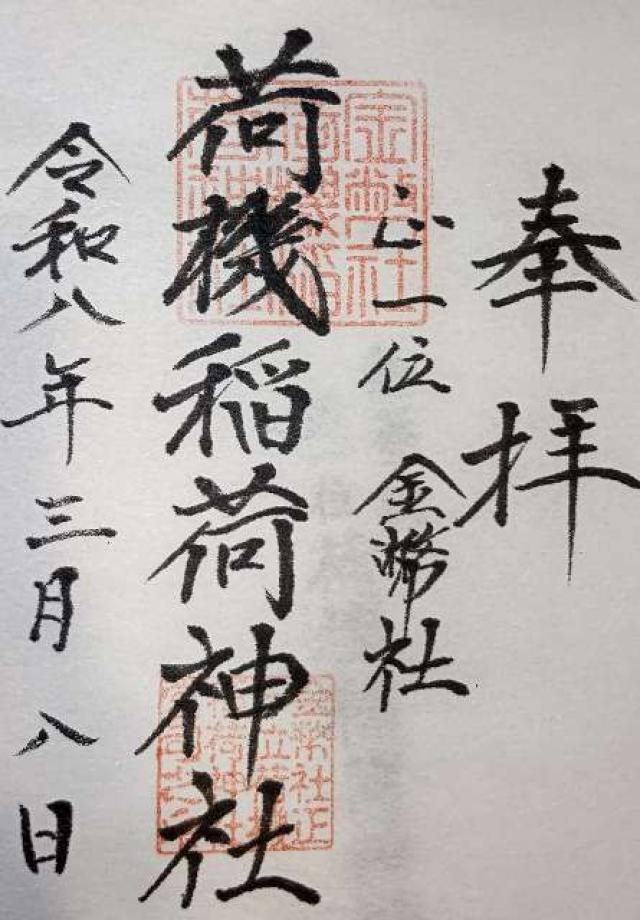 奉拝
正一位 金幣社
荷機稲荷神社
令和八年三月八日